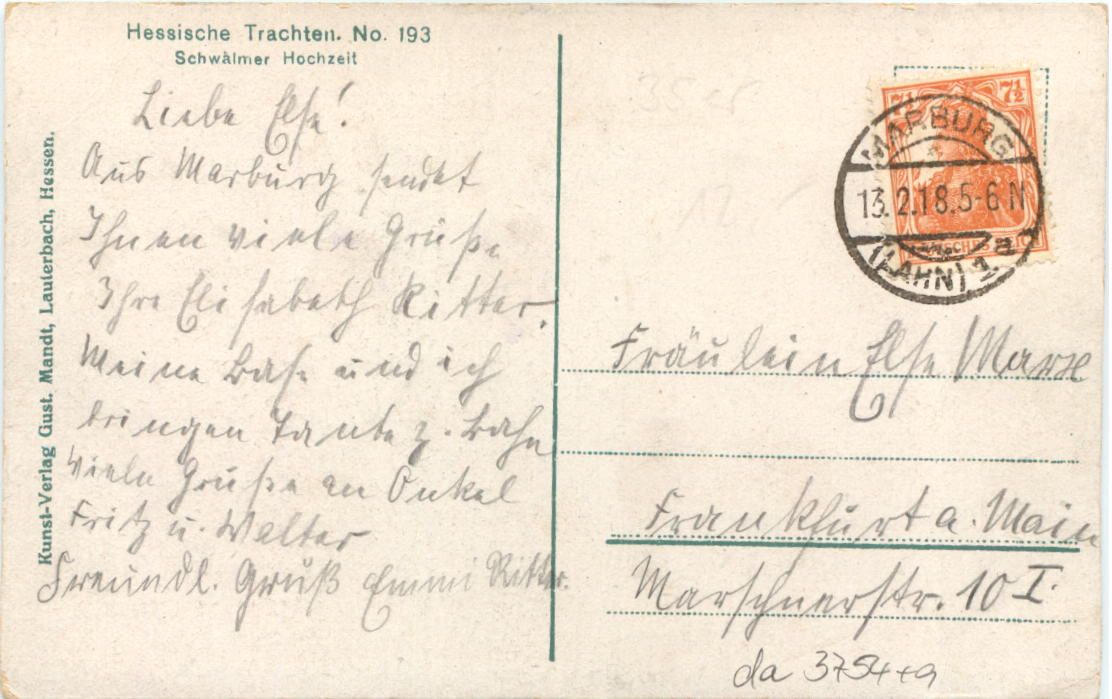 Hessische Trachten. No. 193
Schwälmer Hochzeit
Kunst-Verlag Gust. Mandt, Lauterbach, Hessen.
Liebe Else!
Aus Marburg sendet
Ihnen viele Grüße
Ihre Elisabeth Ritter.
Meine Base und ich
bringen Tante z. Bahn
Viele Grüße an Onkel
Fritz u. Walter
Freundl. Gruß Emmi Ritter.
7½ 7½
MARBURG
13.2.18.5-6 N
(LAHN) 1. a
Fräulein Else Marx
Frankfurt a. Main
Marschnerstr. 10 I.
35
12
da 3754